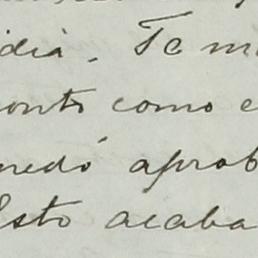 idia. Te m
onto como e
nedó aprob
Esto acaba